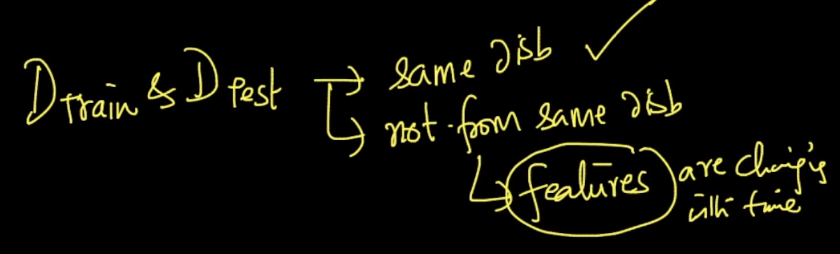 Dtrain & Dtest → same disb ✓
↳ not from same disb
↳ features are changing with time